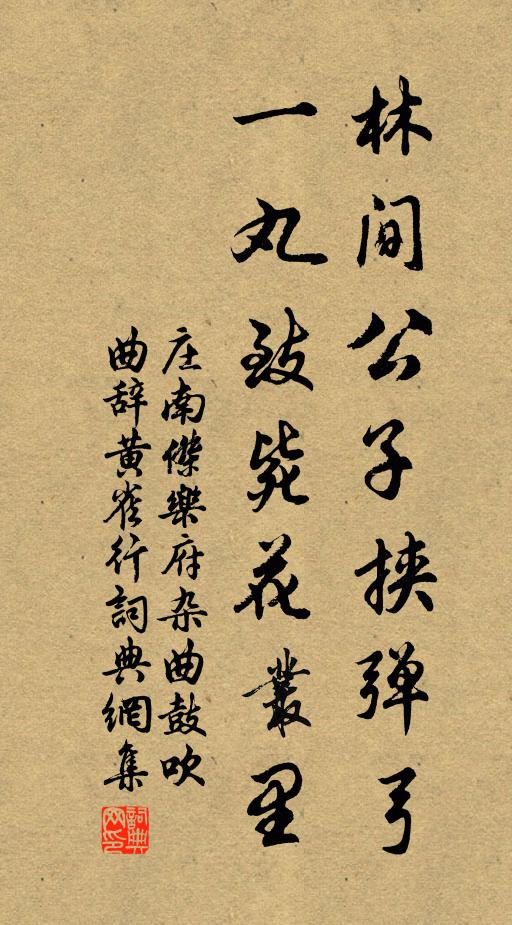 林间公子挟弹弓
一丸致毙花叢里
庄南傑樂府杂曲鼓吹
曲辞黄雀行詞典網集
詞典网印